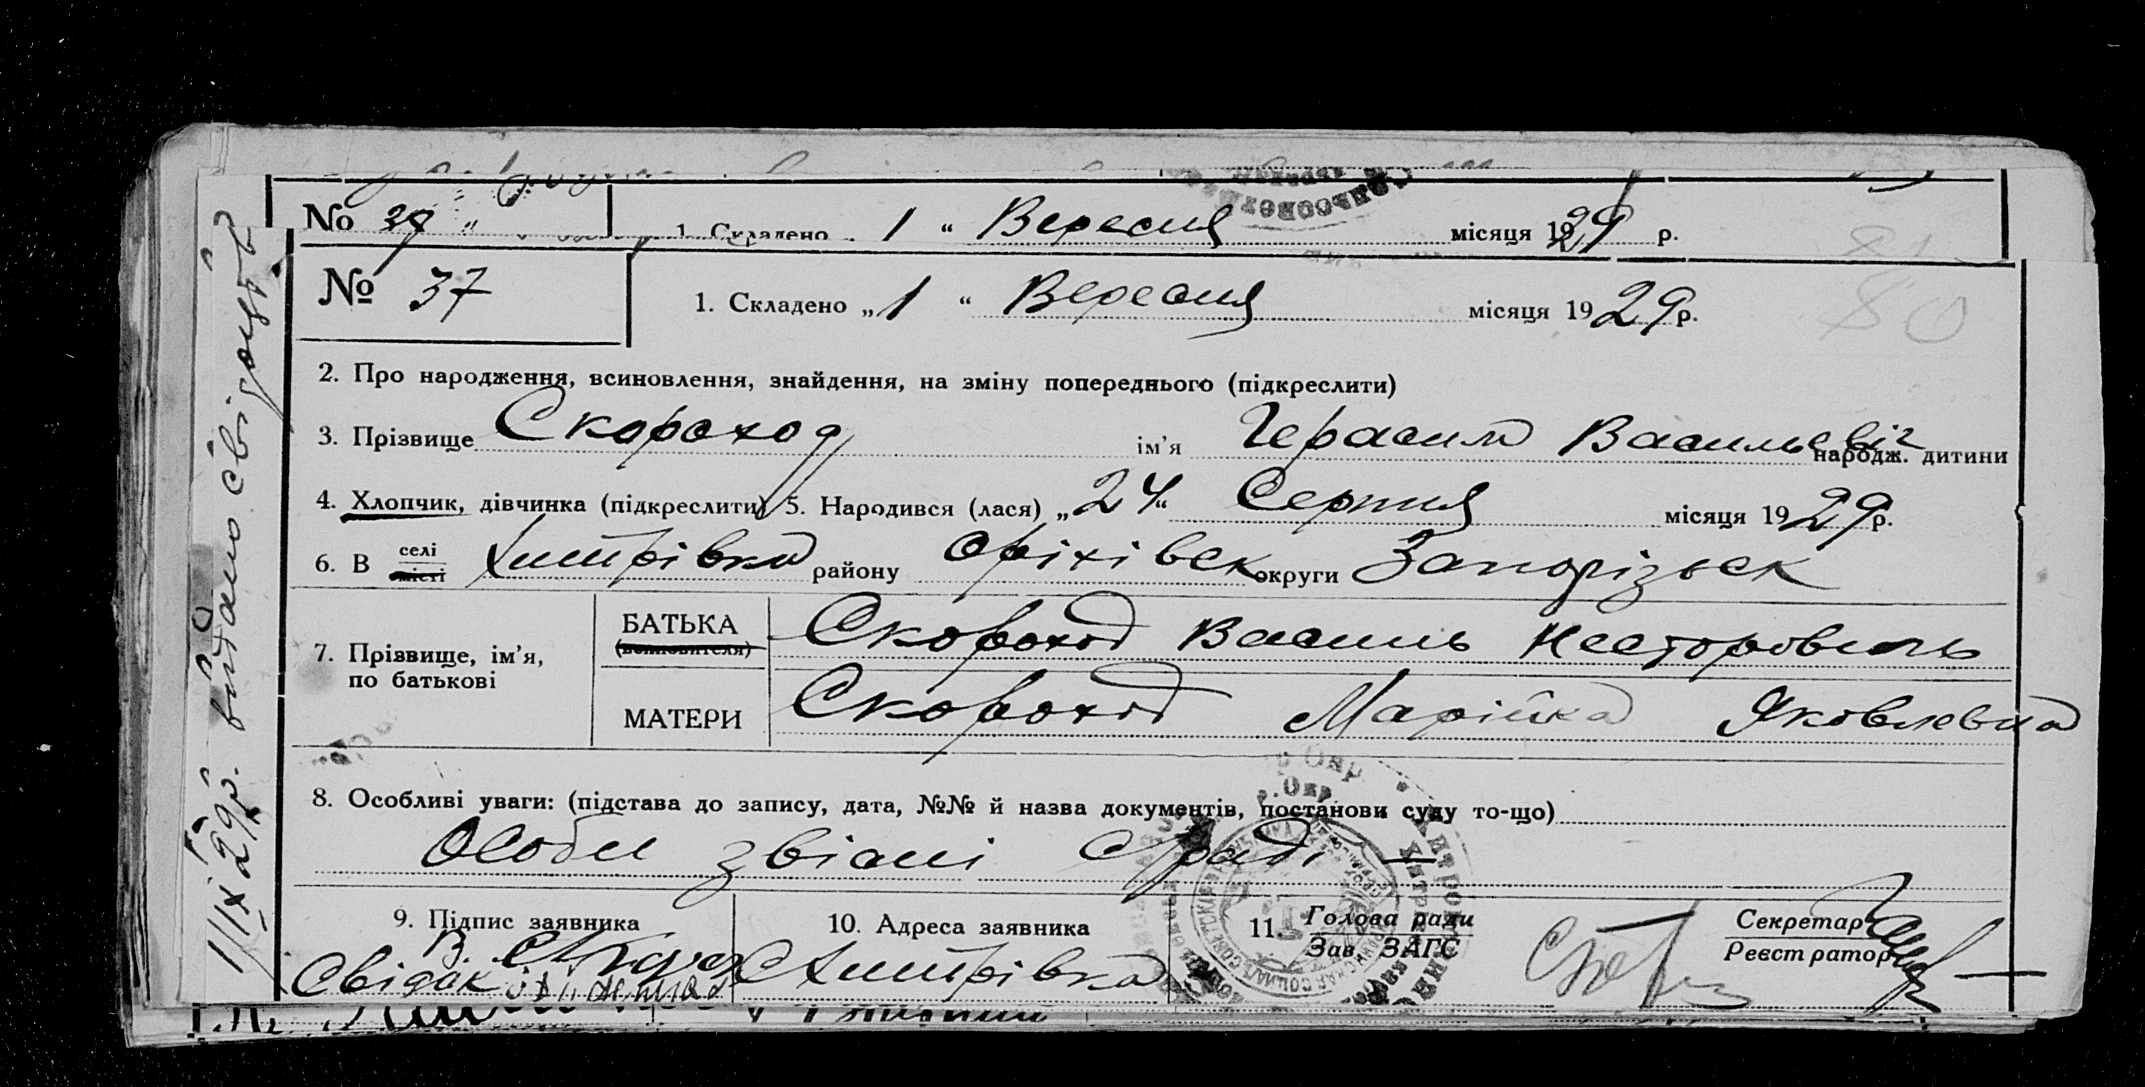 № 37 1. Складено „ 1 “ Вересня місяця 1929 р.
№ 37 1. Складено „ 1 “ Вересня місяця 1929 р.
2. Про народження, всиновлення, знайдення, на зміну попереднього (підкреслити)
3. Прізвище Скороход ім’я Герасим Васильевіч народж. дитини
4. Хлопчик, дівчинка (підкреслити) 5. Народився (лася) „ 24 “ Серпня місяця 1929 р.
6. В селі місті Хитрівка району Оріхівськ округи Запорізьск
7. Прізвище, ім’я, по батькові
БАТЬКА Скороход Василь Несторовичь
МАТЕРИ Скороход Марійка Яковлевна
8. Особли­ві уваги: (підстава до запису, дата, №№ й назва документів, постанови суду то-що)
Особи звісні С/раді
9. Підпис заявника
10. Адреса заявника
11. Голова ради
Зав. ЗАГС
Секретар
Реєстратор
В. Скороход
Свідок
С Хитрівка
1/IX 29р. видано свідоцтв